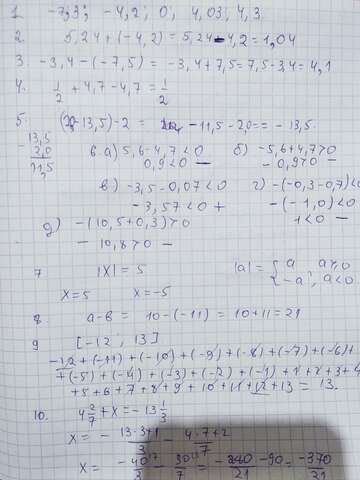 1. -7,3; -4,2; 0; 4,03; 4,3.
2. 5,24+(-4,2) = 5,24-4,2=1,04
3. -3,4-(-7,5) = -3,4+7,5=7,5-3,4=4,1
4. 1/2 + 4,7-4,7 = 1/2
5. -13,5)-2 = -11,5-2,0== -13,5.
13,5
2,0
11,5
6. а) 5,6-4,7<0 б) -5,6+4,7>0
0,9<0 — -0,9>0 —
в) -3,5-0,07<0 г) -(-0,3-0,7)<0
-3,57<0 + -(-1,0)<0
1<0 —
д) -(10,5+0,3)>0
-10,8>0 —
7 |X| = 5 |a| = { a, a≥0
-a, a<0
X=5 X=-5
8. a-b = 10-(-11) = 10+11=21
9 [-12; 13]
-12+(-11)+(-10)+(-9)+(-8)+(-7)+(-6)+
+(-5)+(-4)+(-3)+(-2)+(-1)+1+2+3+4
+5+6+7+8+9+10+11+12+13 = 13.
10. 4 2/7 + X = -13 1/3
X = - 13·3+1/3 - 4·7+2/7
X = -40/3 - 30/7 = -280-90/21 = -370/21